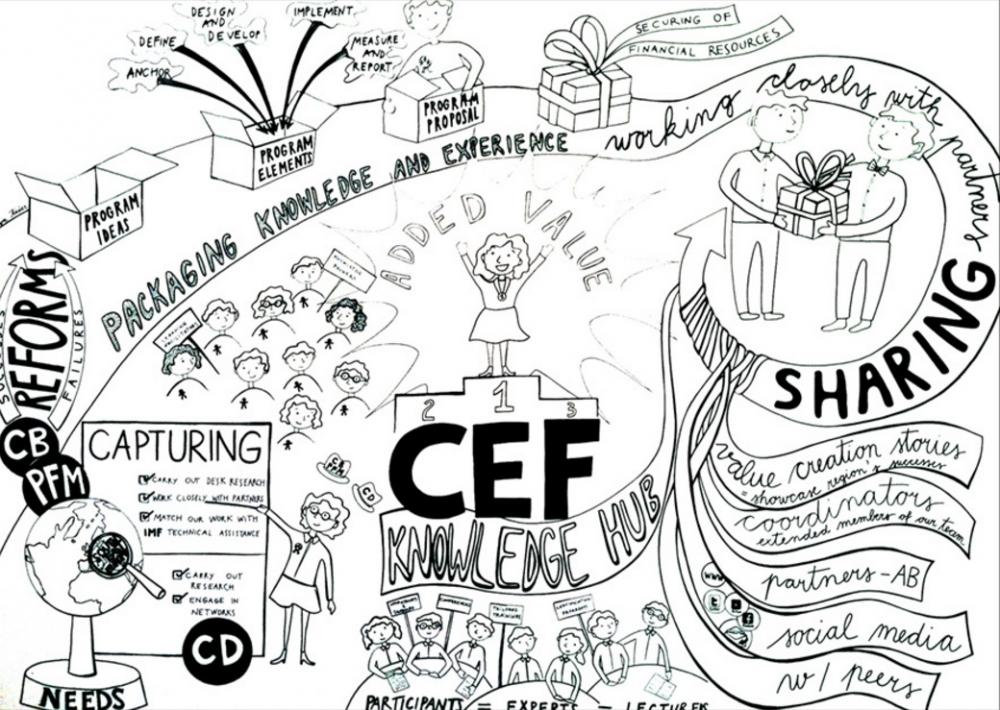 DESIGN
AND
DEVELOP
IMPLEMENT
DEFINE
MEASURE
AND
REPORT
ANCHOR
PROGRAM
IDEAS
PROGRAM
ELEMENTS
PROGRAM
PROPOSAL
SECURING OF
FINANCIAL RESOURCES
PACKAGING KNOWLEDGE AND EXPERIENCE
working closely with partners
ADDED VALUE
REFORMS
FAILURES
CB
PFM
CAPTURING
CARRY OUT DESK RESEARCH
WORK CLOSELY WITH PARTNERS
MATCH OUR WORK WITH
IMF TECHNICAL ASSISTANCE
CARRY OUT
RESEARCH
ENGAGE IN
NETWORKS
CD
NEEDS
CB
PFM
CD
2 1 3
CEF
KNOWLEDGE HUB
PARTICIPANTS = EXPERTS = LECTURERS
SHARING
value creation stories
= showcase region x successes
coordinators
extended members of our team
partners-AB
www
social media
w/ peers